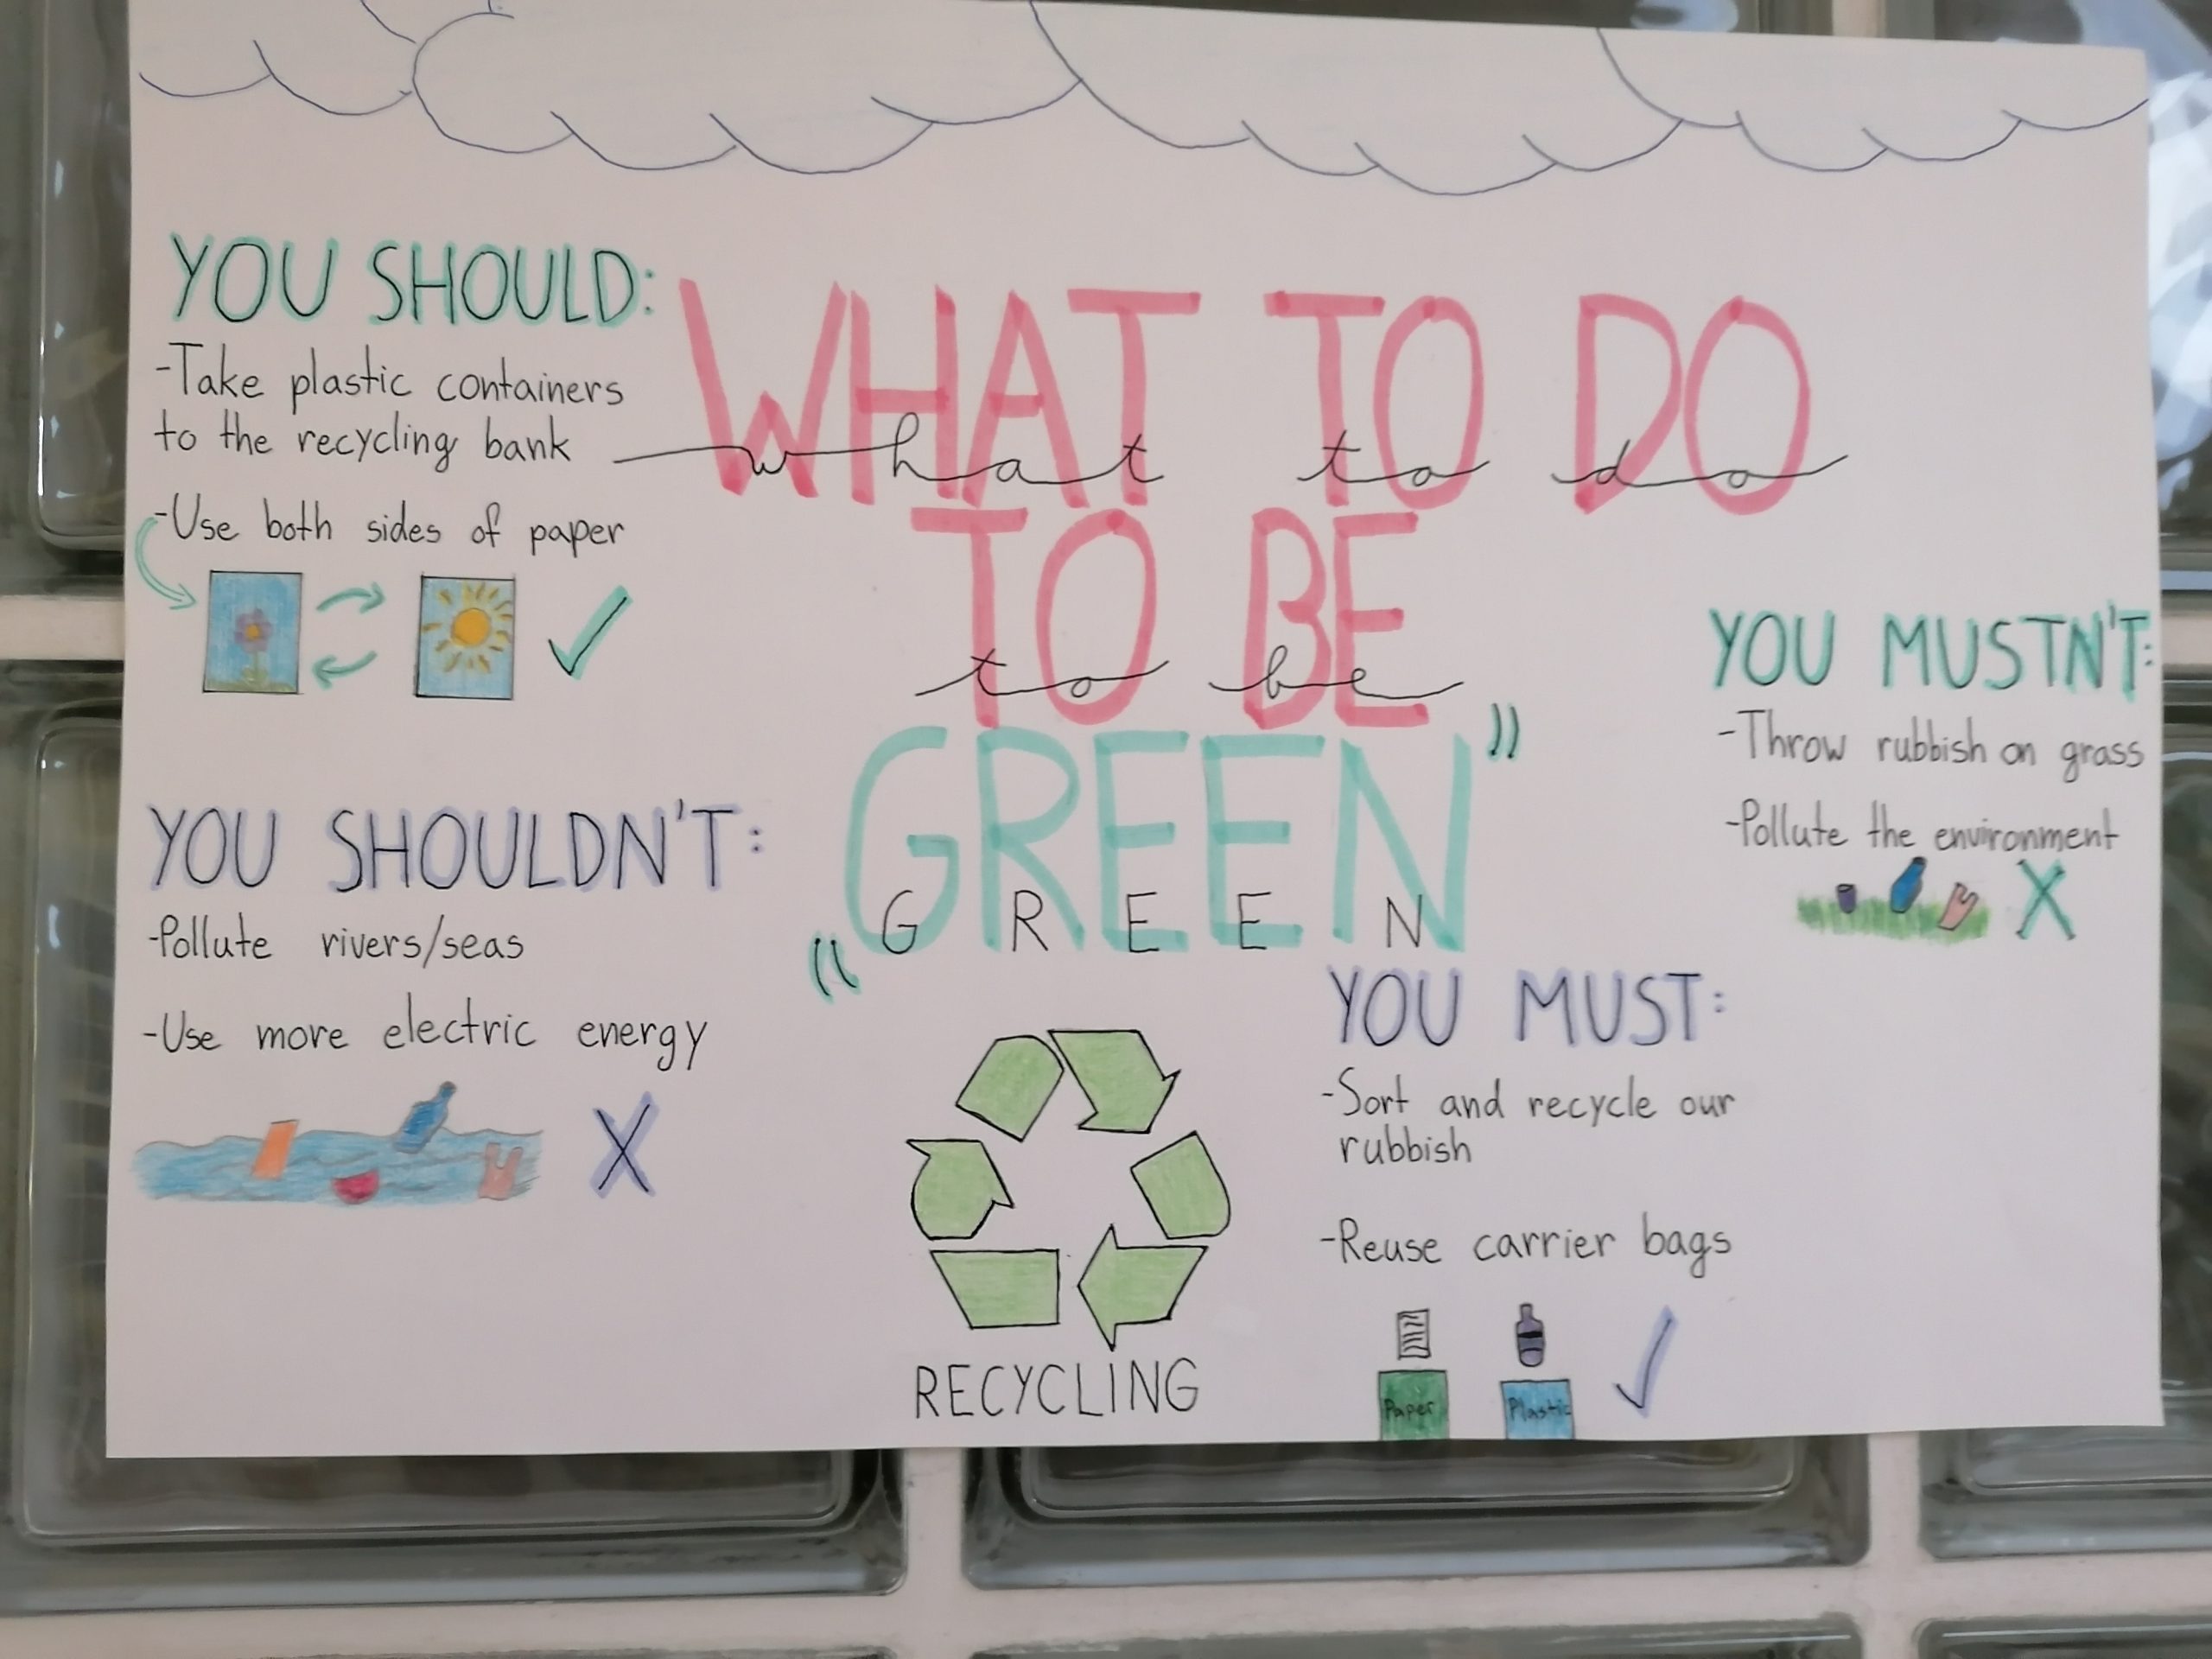 YOU SHOULD:
-Take plastic containers
to the recycling bank
-Use both sides of paper
WHAT TO DO
what to do
TO BE
to be
GREEN"
"GREEN
YOU SHOULDN'T:
-Pollute rivers/seas
-Use more electric energy
YOU MUSTN'T:
-Throw rubbish on grass
-Pollute the environment
YOU MUST:
-Sort and recycle our
rubbish
-Reuse carrier bags
Paper
Plastic
RECYCLING